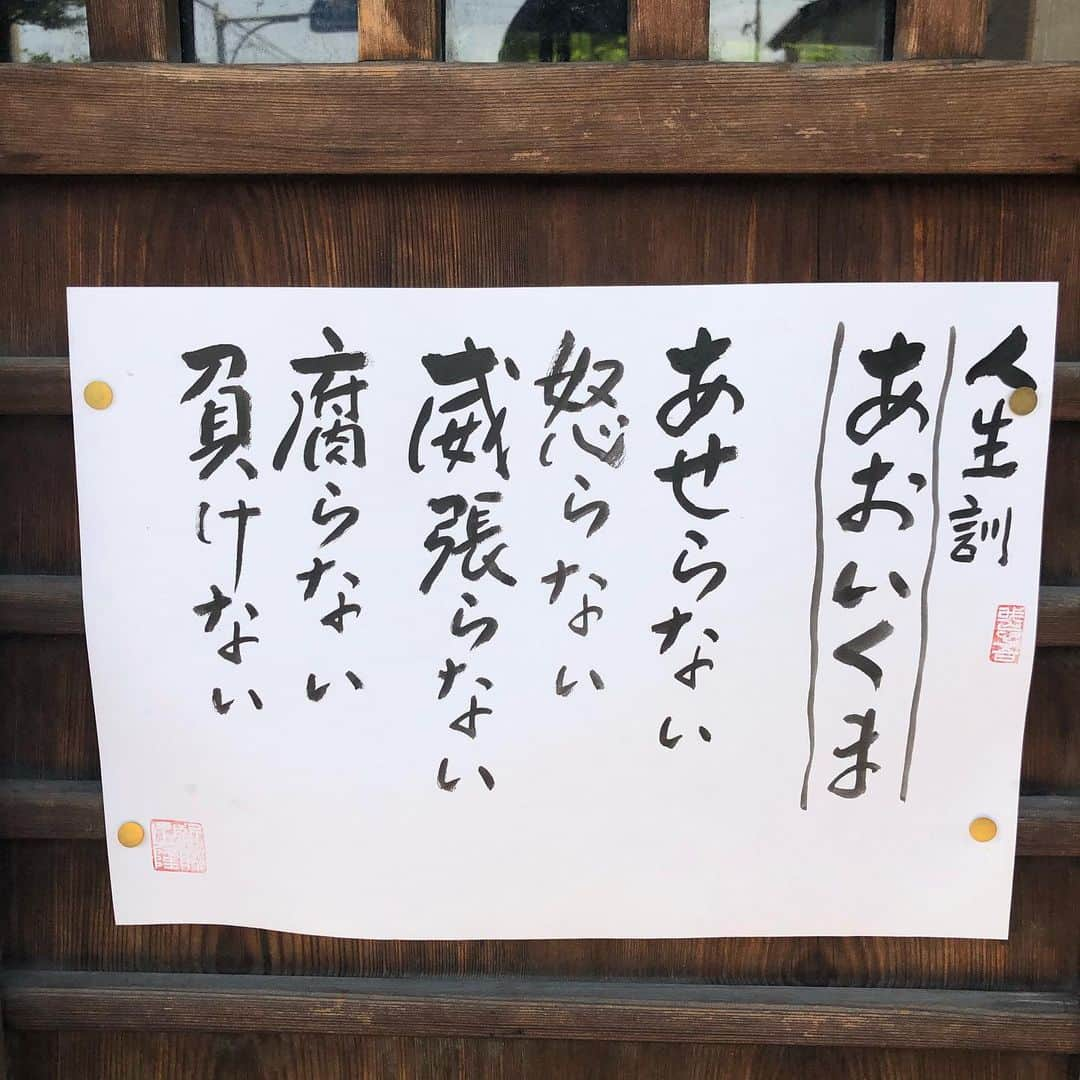 人生訓
あおいくま
あせらない
怒らない
威張らない
腐らない
負けない